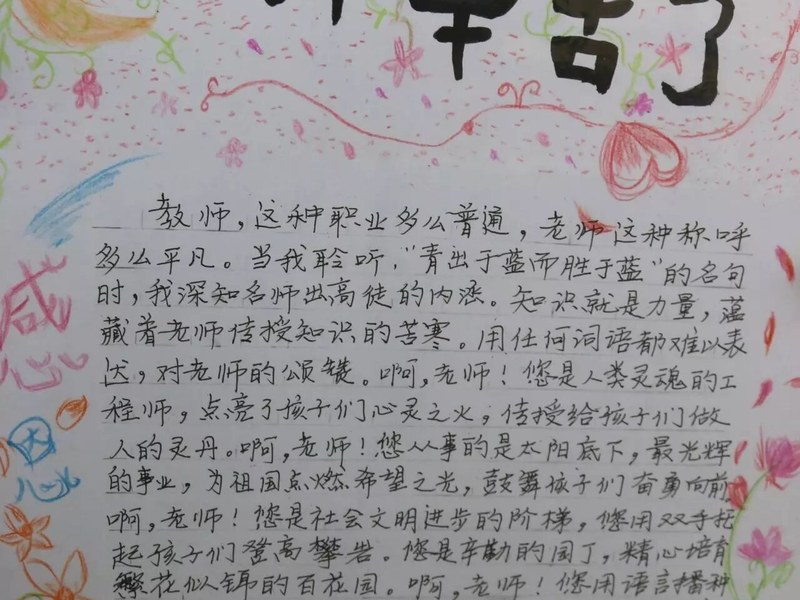 辛苦了
感
恩
教师，这种职业多么普通，老师这种称呼
多么平凡。当我聆听，“青出于蓝而胜于蓝”的名句
时，我深知名师出高徒的内涵。知识就是力量，蕴
藏着老师传授知识的苦寒。用任何词语都难以表
达，对老师的颂赞。啊，老师！您是人类灵魂的工
程师，点亮了孩子们心灵之火；传授给孩子们做
人的灵丹。啊，老师！您从事的是太阳底下，最光辉
的事业，为祖国点燃希望之光，鼓舞孩子们奋勇向前
啊，老师！您是社会文明进步的阶梯，您用双手托
起孩子们登高攀岩。您是辛勤的园丁，精心培育
繁花似锦的百花园。啊，老师！您用语言播种